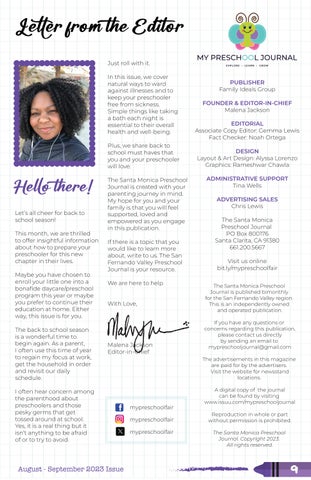 Letter from the Editor
Hello there!
Let's all cheer for back to
school season!
This month, we are thrilled
to offer insightful information
about how to prepare your
preschooler for this new
chapter in their lives.
Maybe you have chosen to
enroll your little one into a
bonafide daycare/preschool
program this year or maybe
you prefer to continue their
education at home. Either
way, this issue is for you.
The back to school season
is a wonderful time to
begin again. As a parent,
I often use this time of year
to regain my focus at work,
get the household in order
and revisit our daily
schedule.
I often hear concern among
the parenthood about
preschoolers and those
pesky germs that get
tossed around at school.
Yes, it is a real thing but it
isn't anything to be afraid
of or to try to avoid.
Just roll with it.
In this issue, we cover
natural ways to ward
against illnesses and to
keep your preschooler
free from sickness.
Simple things like taking
a bath each night is
essential to their overall
health and well-being.
Plus, we share back to
school must haves that
you and your preschooler
will love.
The Santa Monica Preschool
Journal is created with your
parenting journey in mind.
My hope for you and your
family is that you will feel
supported, loved and
empowered as you engage
in this publication.
If there is a topic that you
would like to learn more
about, write to us. The San
Fernando Valley Preschool
Journal is your resource.
We are here to help.
With Love,
Malena Jackson
Editor-in-Chief
mypreschoolfair
mypreschoolfair
mypreschoolfair
MY PRESCHOOL JOURNAL
EXPLORE · LEARN · GROW
PUBLISHER
Family Ideals Group
FOUNDER & EDITOR-IN-CHIEF
Malena Jackson
EDITORIAL
Associate Copy Editor: Gemma Lewis
Fact Checker: Noah Ortega
DESIGN
Layout & Art Design: Alyssa Lorenzo
Graphics: Rameshwar Chawla
ADMINISTRATIVE SUPPORT
Tina Wells
ADVERTISING SALES
Chris Lewis
The Santa Monica
Preschool Journal
PO Box 801176
Santa Clarita, CA 91380
661.200.5667
Visit us online
bit.ly/mypreschoolfair
The Santa Monica Preschool
Journal is published bimonthly
for the San Fernando Valley region.
This is an independently owned
and operated publication.
If you have any questions or
concerns regarding this publication,
please contact us directly
by sending an email to
mypreschooljournal@gmail.com
The advertisements in this magazine
are paid for by the advertisers.
Visit the website for newsstand
locations.
A digital copy of the journal
can be found by visiting
www.issuu.com/mypreschooljournal
Reproduction in whole or part
without permission is prohibited.
The Santa Monica Preschool
Journal. Copyright 2023.
All rights reserved.
August - September 2023 Issue
9